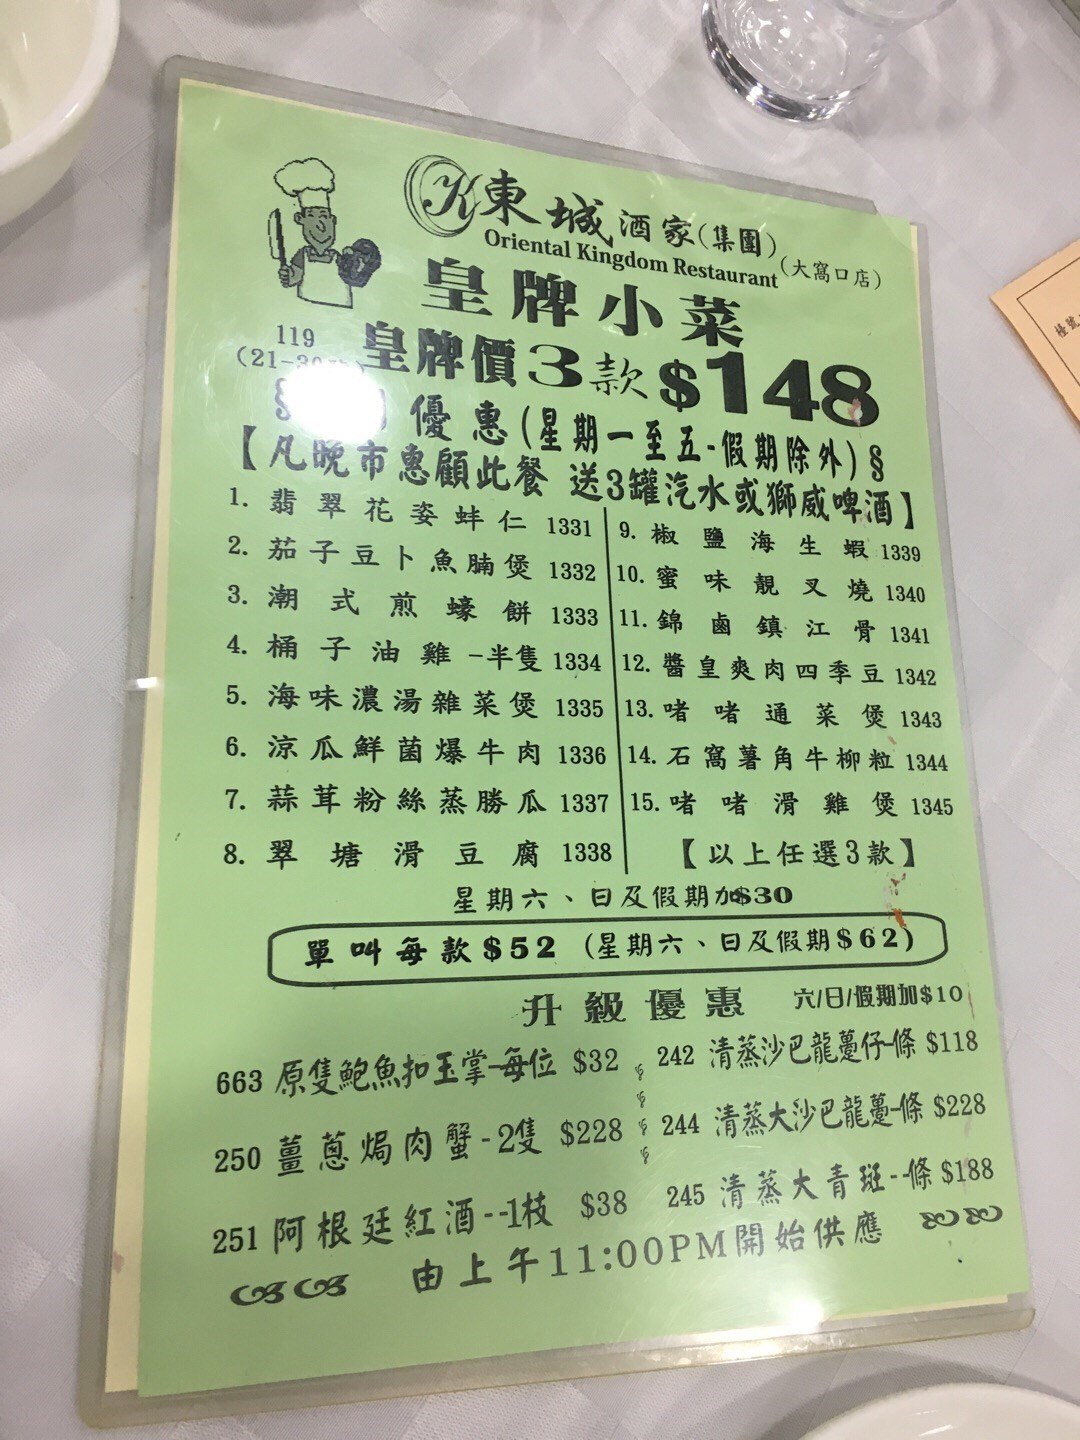 東城酒家(集團)
Oriental Kingdom Restaurant (大窩口店)
皇牌小菜
119
(21-30
皇牌價3款$148
§ 優惠(星期一至五-假期除外)§
【凡晚市惠顧此餐 送3罐汽水或獅威啤酒】
1. 翡翠花姿蚌仁 1331
2. 茄子豆卜魚腩煲 1332
3. 潮式煎蠔餅 1333
4. 桶子油雞-半隻 1334
5. 海味濃湯雜菜煲 1335
6. 涼瓜鮮菌爆牛肉 1336
7. 蒜茸粉絲蒸勝瓜 1337
8. 翠塘滑豆腐 1338
9. 椒鹽海生蝦 1339
10. 蜜味靚叉燒 1340
11. 錦鹵鎮江骨 1341
12. 醬皇爽肉四季豆 1342
13. 啫啫通菜煲 1343
14. 石窩薯角牛柳粒 1344
15. 啫啫滑雞煲 1345
【以上任選3款】
星期六、日及假期加$30
單叫每款$52 (星期六、日及假期$62)
升級優惠 六/日/假期加$10
663 原隻鮑魚扣玉掌-每位 $32
250 薑蔥焗肉蟹-2隻 $228
251 阿根廷紅酒--1枝 $38
242 清蒸沙巴龍躉仔-條 $118
244 清蒸大沙巴龍躉-條 $228
245 清蒸大青斑--條 $188
由上午11:00PM開始供應
檯號